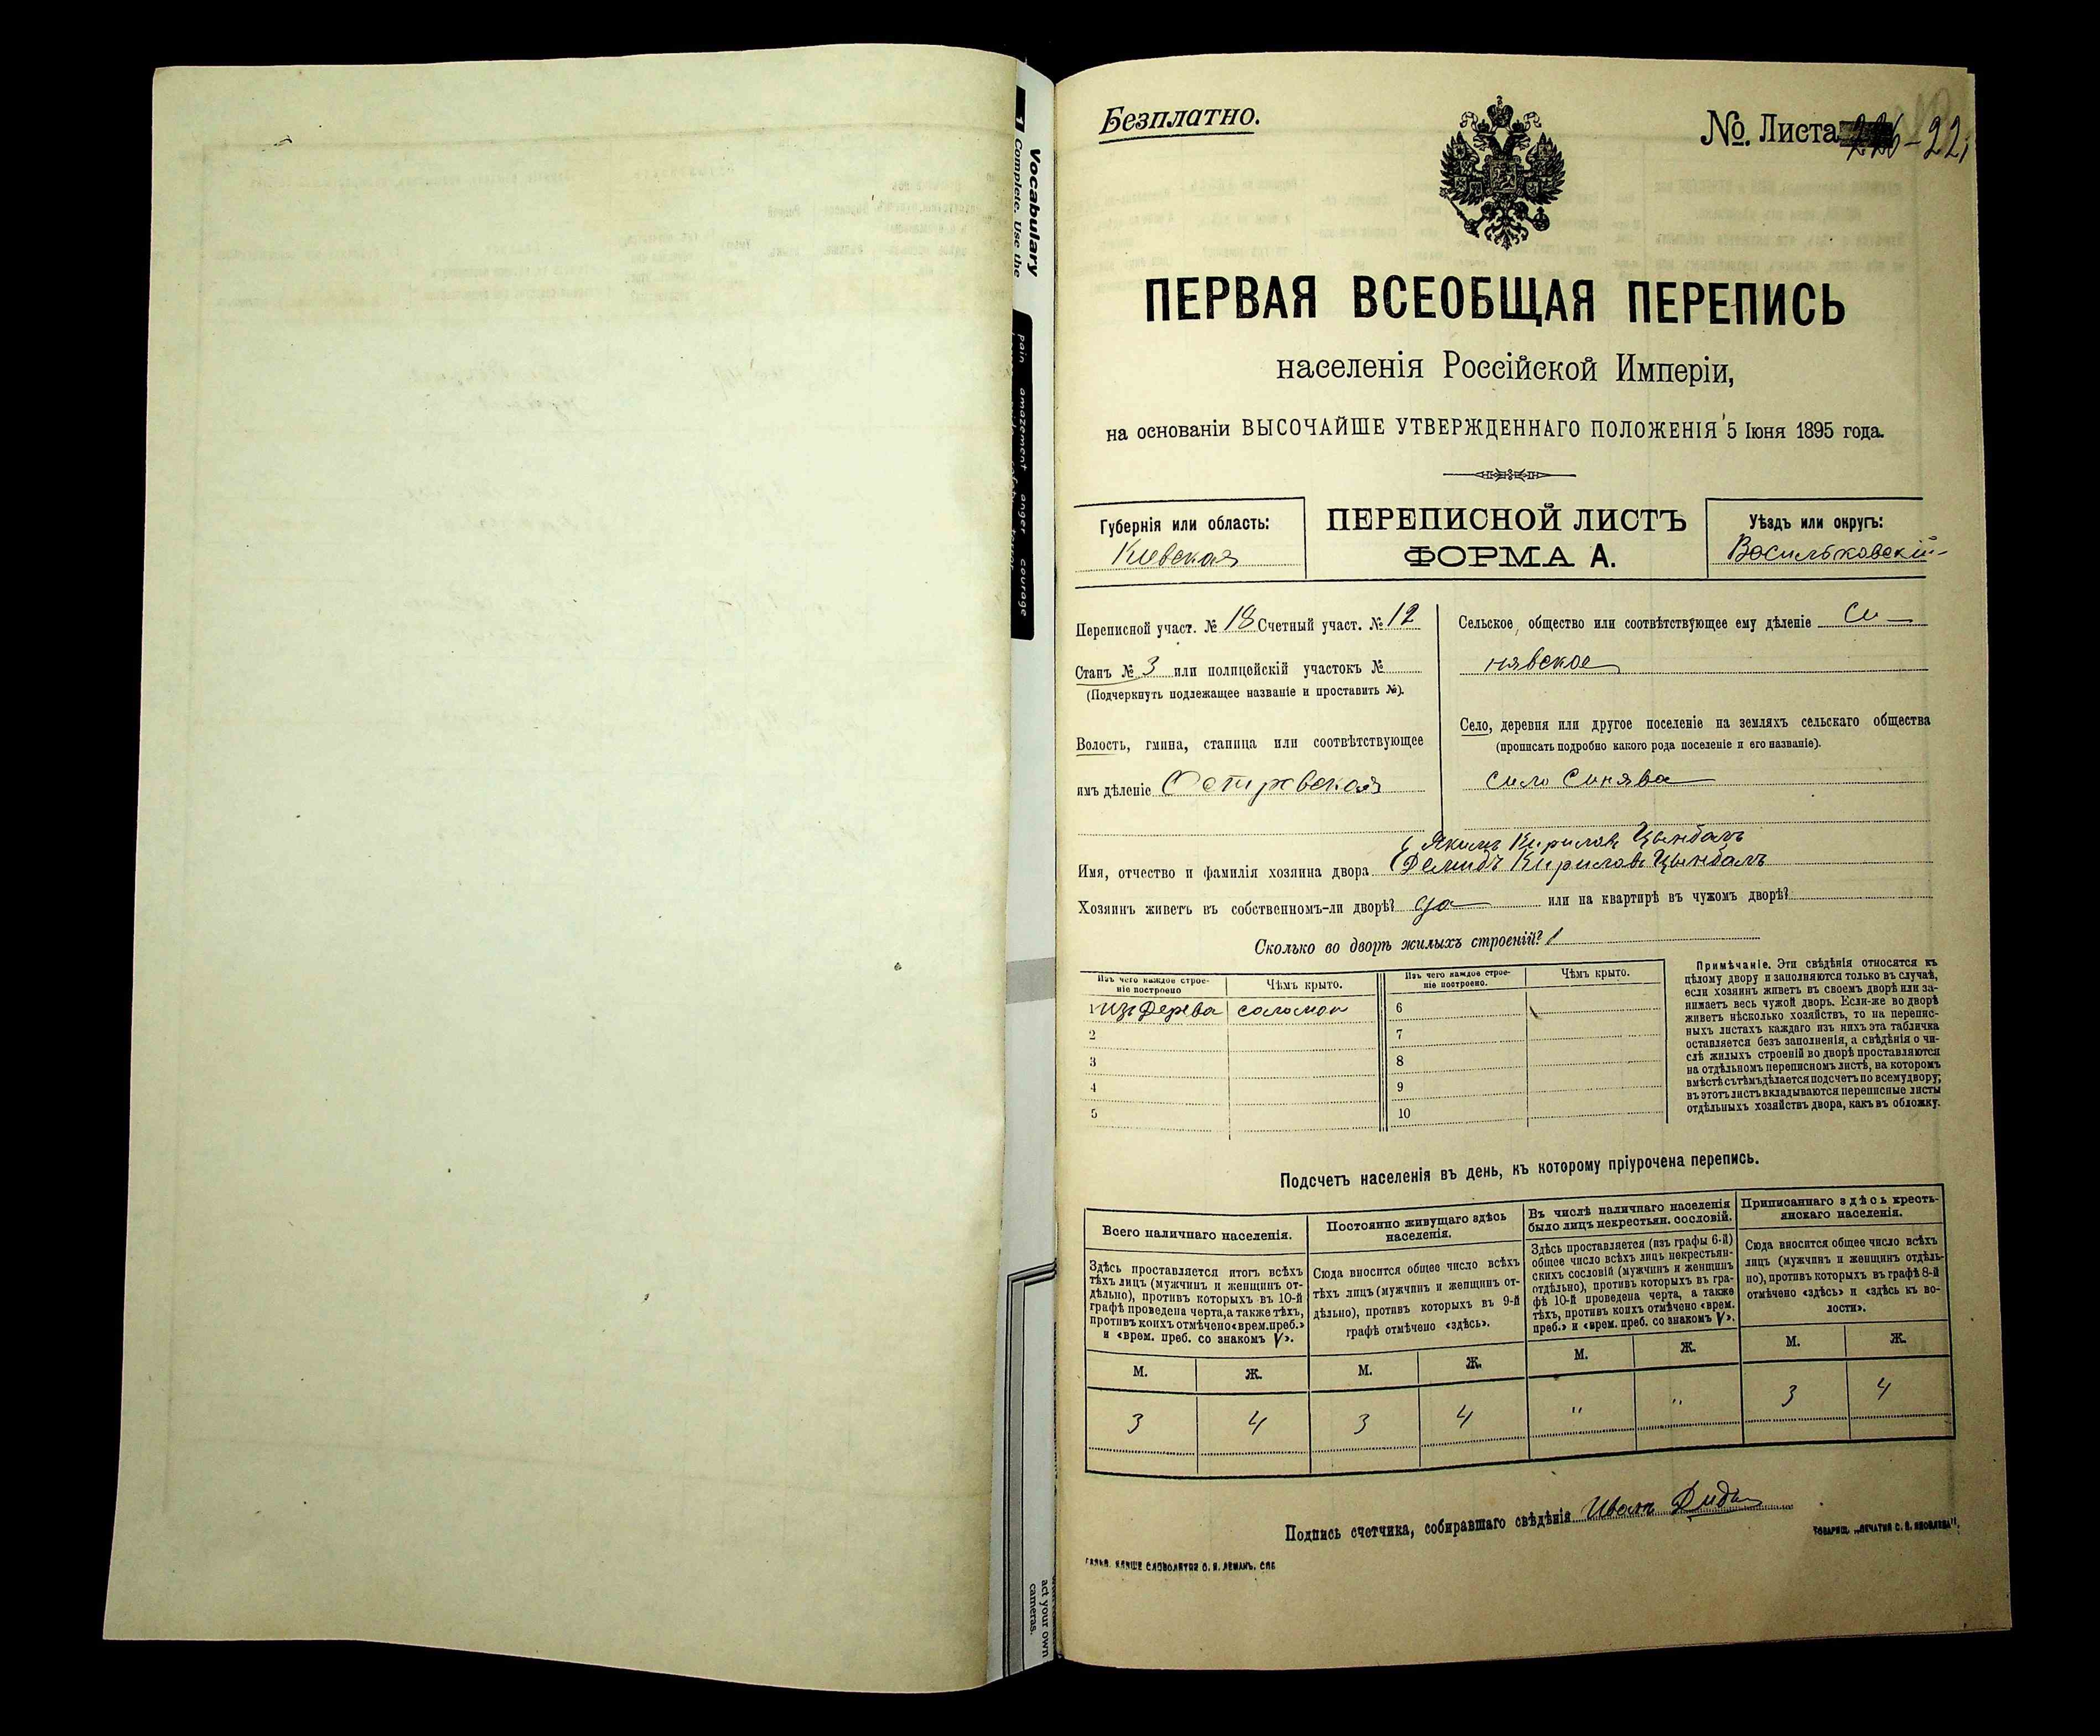 Vocabulary
1 Complete. Use the
pain amazement anger courage
act your own
cameras.
Безплатно.
№. Листа 226-22
ПЕРВАЯ ВСЕОБЩАЯ ПЕРЕПИСЬ
населенія Россійской Имперіи,
на основаніи ВЫСОЧАЙШЕ УТВЕРЖДЕННАГО ПОЛОЖЕНІЯ 5 Іюня 1895 года.
Губернія или область:
Кіевская
ПЕРЕПИСНОЙ ЛИСТЪ
ФОРМА А.
Уѣздъ или округъ:
Васильковскій
Переписной участ. № 18 Счетный участ. № 12
Станъ № 3 или полицейскій участокъ №
(Подчеркнуть подлежащее названіе и проставить №).
Волость, гмина, станица или соотвѣтствующее
имъ дѣленіе Острвская
Сельское общество или соотвѣтствующее ему дѣленіе Си-
нявское
Село, деревня или другое поселеніе на земляхъ сельскаго общества
(прописать подробно какого рода поселеніе и его названіе).
село Синява
Якимъ Кириловъ Цымбалъ
Имя, отчество и фамилія хозяина двора Демидъ Кириловъ Цымбалъ
Хозяинъ живетъ въ собственномъ-ли дворѣ? да или на квартирѣ въ чужомъ дворѣ?
Сколько во дворѣ жилыхъ строеній? 1
Изъ чего каждое строе-
ніе построено
Чѣмъ крыто.
Изъ чего каждое строе-
ніе построено.
Чѣмъ крыто.
1 изъ дерева соломой 6
2 7
3 8
4 9
5 10
Примѣчаніе. Эти свѣдѣнія относятся къ
цѣлому двору и заполняются только въ случаѣ,
если хозяинъ живетъ въ своемъ дворѣ или за-
нимаетъ весь чужой дворъ. Если-же во дворѣ
живетъ нѣсколько хозяйствъ, то на перепис-
ныхъ листахъ каждаго изъ нихъ эта табличка
оставляется безъ заполненія, а свѣдѣнія о чи-
слѣ жилыхъ строеній во дворѣ проставляются
на отдѣльномъ переписномъ листѣ, на которомъ
вмѣстѣ съ тѣмъ дѣлается подсчетъ по всему двору;
въ этотъ листъ вкладываются переписные листы
отдѣльныхъ хозяйствъ двора, какъ въ обложку.
Подсчетъ населенія въ день, къ которому пріурочена перепись.
Всего наличнаго населенія.
Здѣсь проставляется итогъ всѣхъ
тѣхъ лицъ (мужчинъ и женщинъ от-
дѣльно), противъ которыхъ въ 10-й
графѣ проведена черта, а также тѣхъ,
противъ коихъ отмѣчено «врем. преб.»
и «врем. преб. со знакомъ V».
М. Ж.
3 4
Постоянно живущаго здѣсь
населенія.
Сюда вносится общее число всѣхъ
тѣхъ лицъ (мужчинъ и женщинъ от-
дѣльно), противъ которыхъ въ 9-й
графѣ отмѣчено «здѣсь».
М. Ж.
3 4
Въ числѣ наличнаго населенія
было лицъ некрестьян. сословій.
Здѣсь проставляется (изъ графы 6-й)
общее число всѣхъ лицъ некрестьян-
скихъ сословій (мужчинъ и женщинъ
отдѣльно), противъ которыхъ въ гра-
фѣ 10-й проведена черта, а также
тѣхъ, противъ коихъ отмѣчено «врем.
преб.» и «врем. преб. со знакомъ V».
М. Ж.
" "
Приписаннаго здѣсь кресть-
янскаго населенія.
Сюда вносится общее число всѣхъ
лицъ (мужчинъ и женщинъ отдѣль-
но), противъ которыхъ въ графѣ 8-й
отмѣчено «здѣсь» и «здѣсь къ во-
лости».
М. Ж.
3 4
Подпись счетчика, собиравшаго свѣдѣнія Иванъ
СЛОВОЛИТНЯ О. И. ЛЕМАНЪ, СПБ
ТОВАРИЩ. „ПЕЧАТНЯ С. П. ЯКОВЛЕВА".